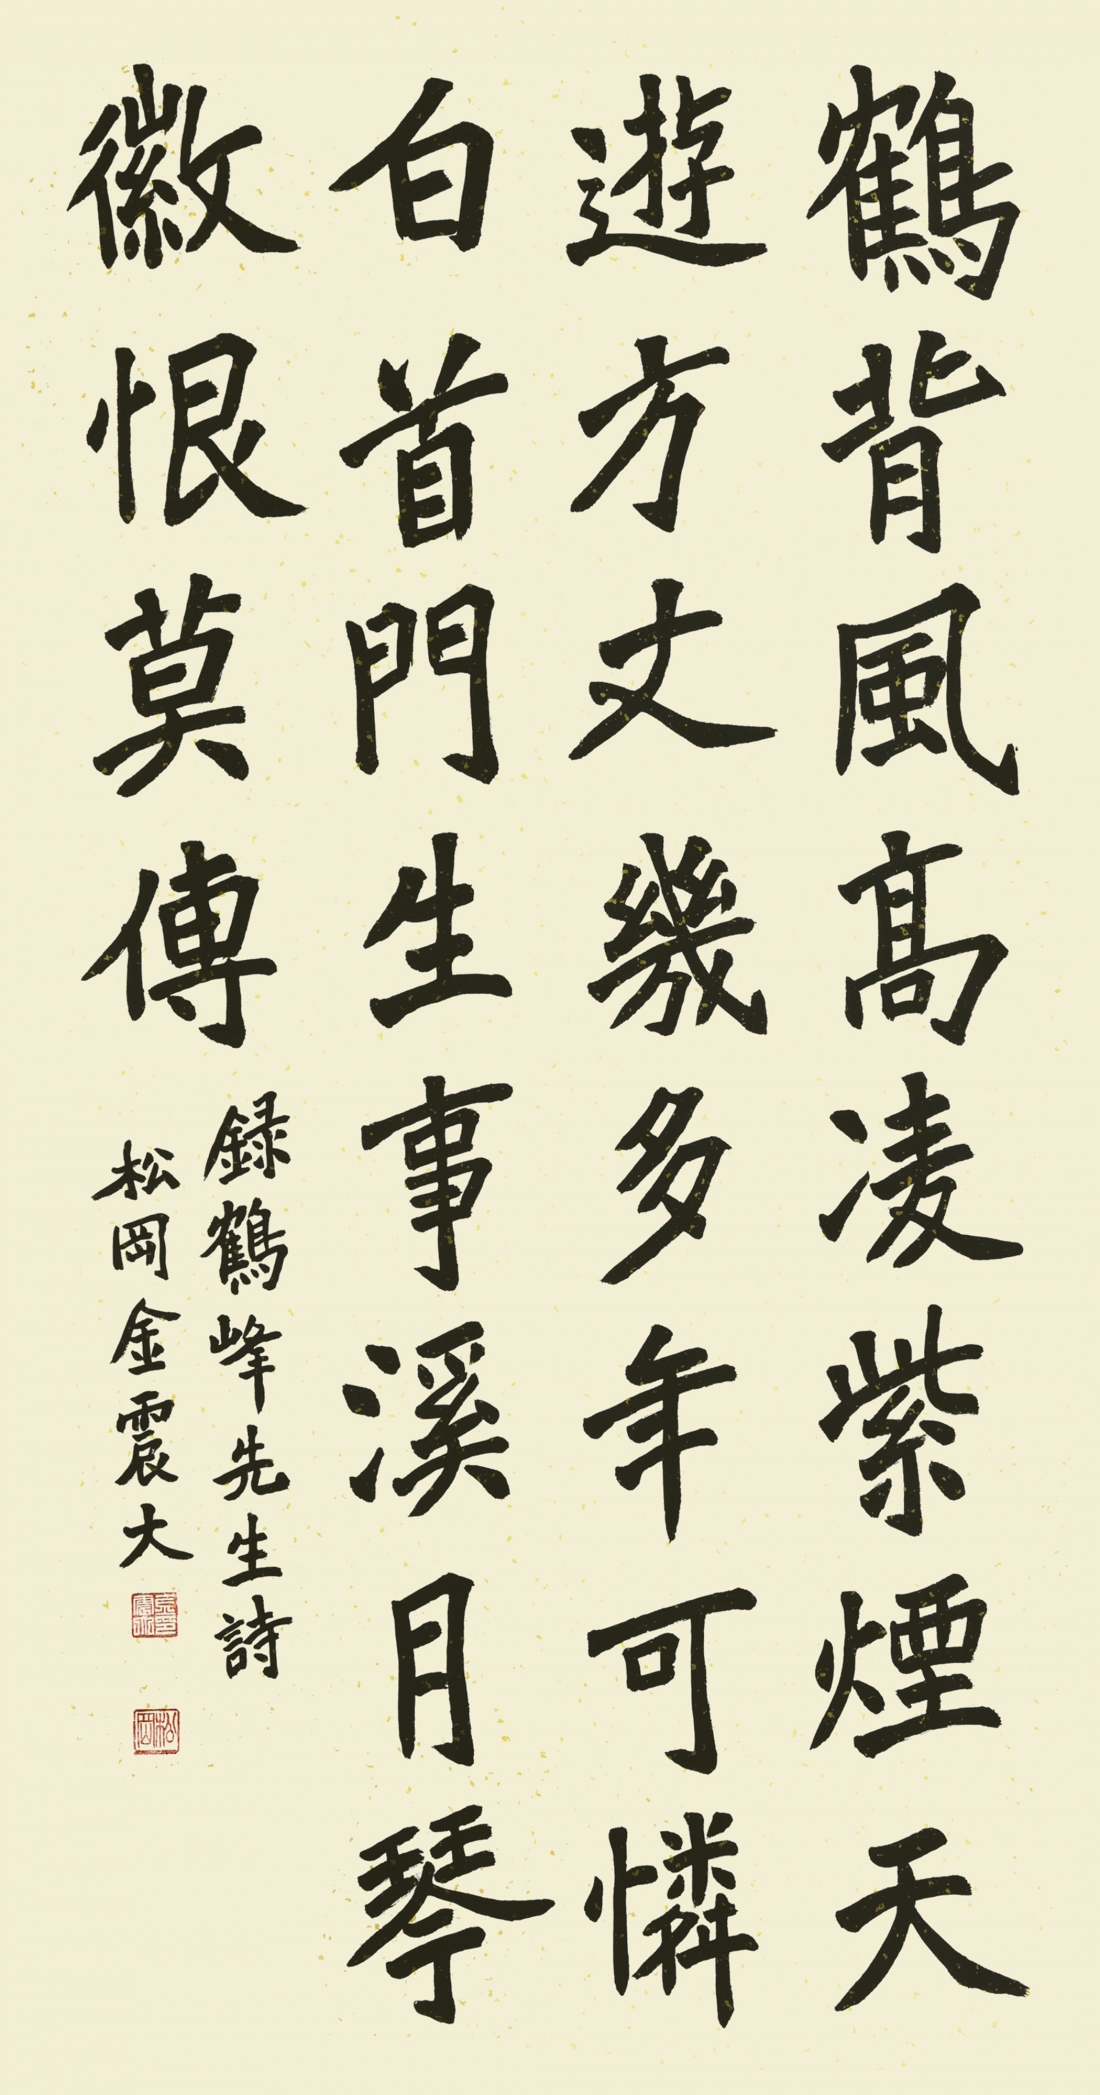 鶴背風高凌紫煙天
遊方丈幾多年可憐
白首門生事溪月琴
徽恨莫傳
録鶴峰先生詩
松岡金震大
松岡